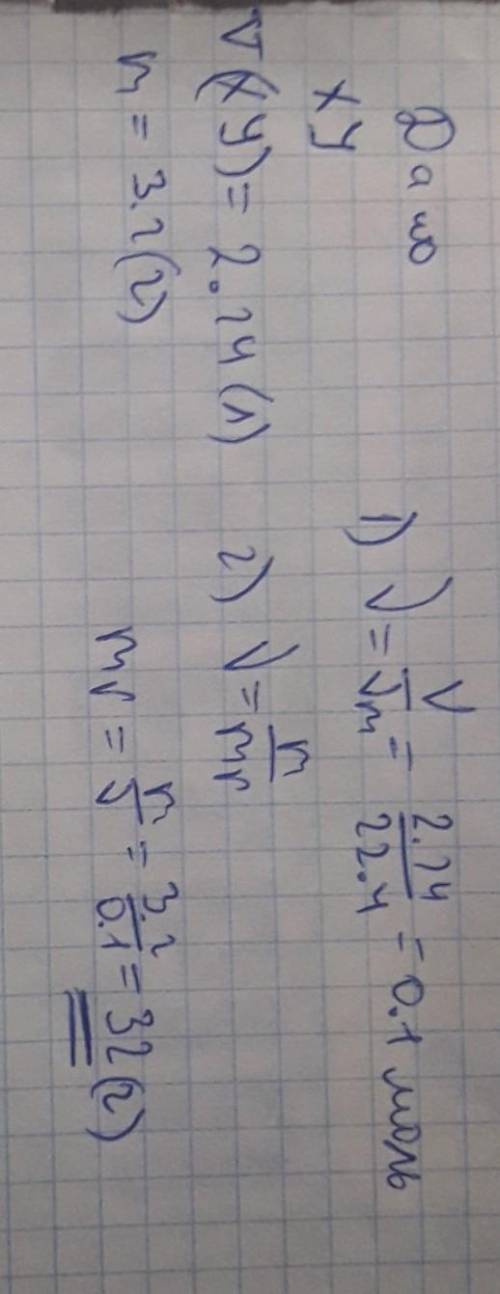 Дано
ХУ
V(ХУ) = 2.24(л)
m = 3.2(г)
1) ν = V/Vm = 2.24/22.4 = 0.1 моль
2) ν = m/Mr
Mr = m/ν = 3.2/0.1 = 32(г)